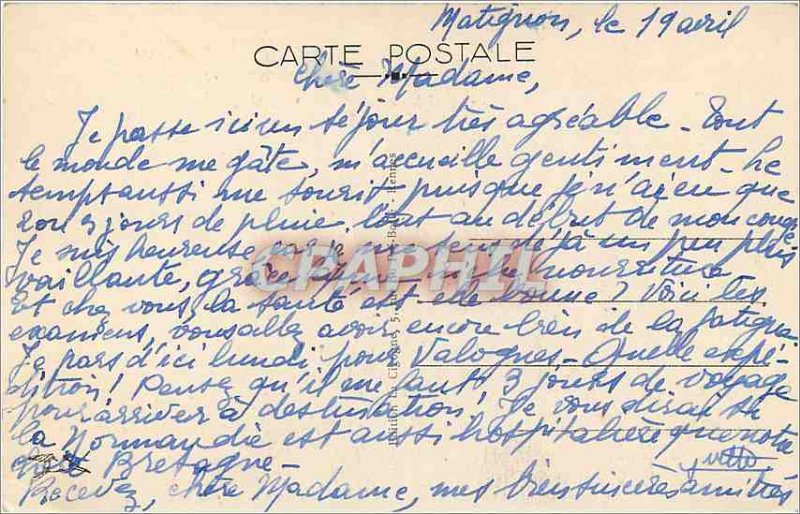 Matignon, le 19 avril
CARTE POSTALE
Chère Madame,
Je passe ici un séjour très agréable - Tout
le monde me gâte, m'accueille gentiment - Le
temps aussi me sourit puisque je n'ai eu que
2 ou 3 jours de pluie, au début de mon congé
Je suis heureuse car je me sens déjà un peu plus
vaillante, grâce nourriture
CPAPHIL
Et chez vous la santé est elle bonne? Voici les
examens, vous allez avoir encore bien de la fatigue
Je pars d'ici lundi pour Valognes - Quelle expé-
dition! Pensez qu'il me faut 3 jours de voyage
pour arriver à destination, Je vous dirai si
la Normandie est aussi hospitalière que notre
Bretagne -
Recevez, chère Madame, mes bien sincères amitiés